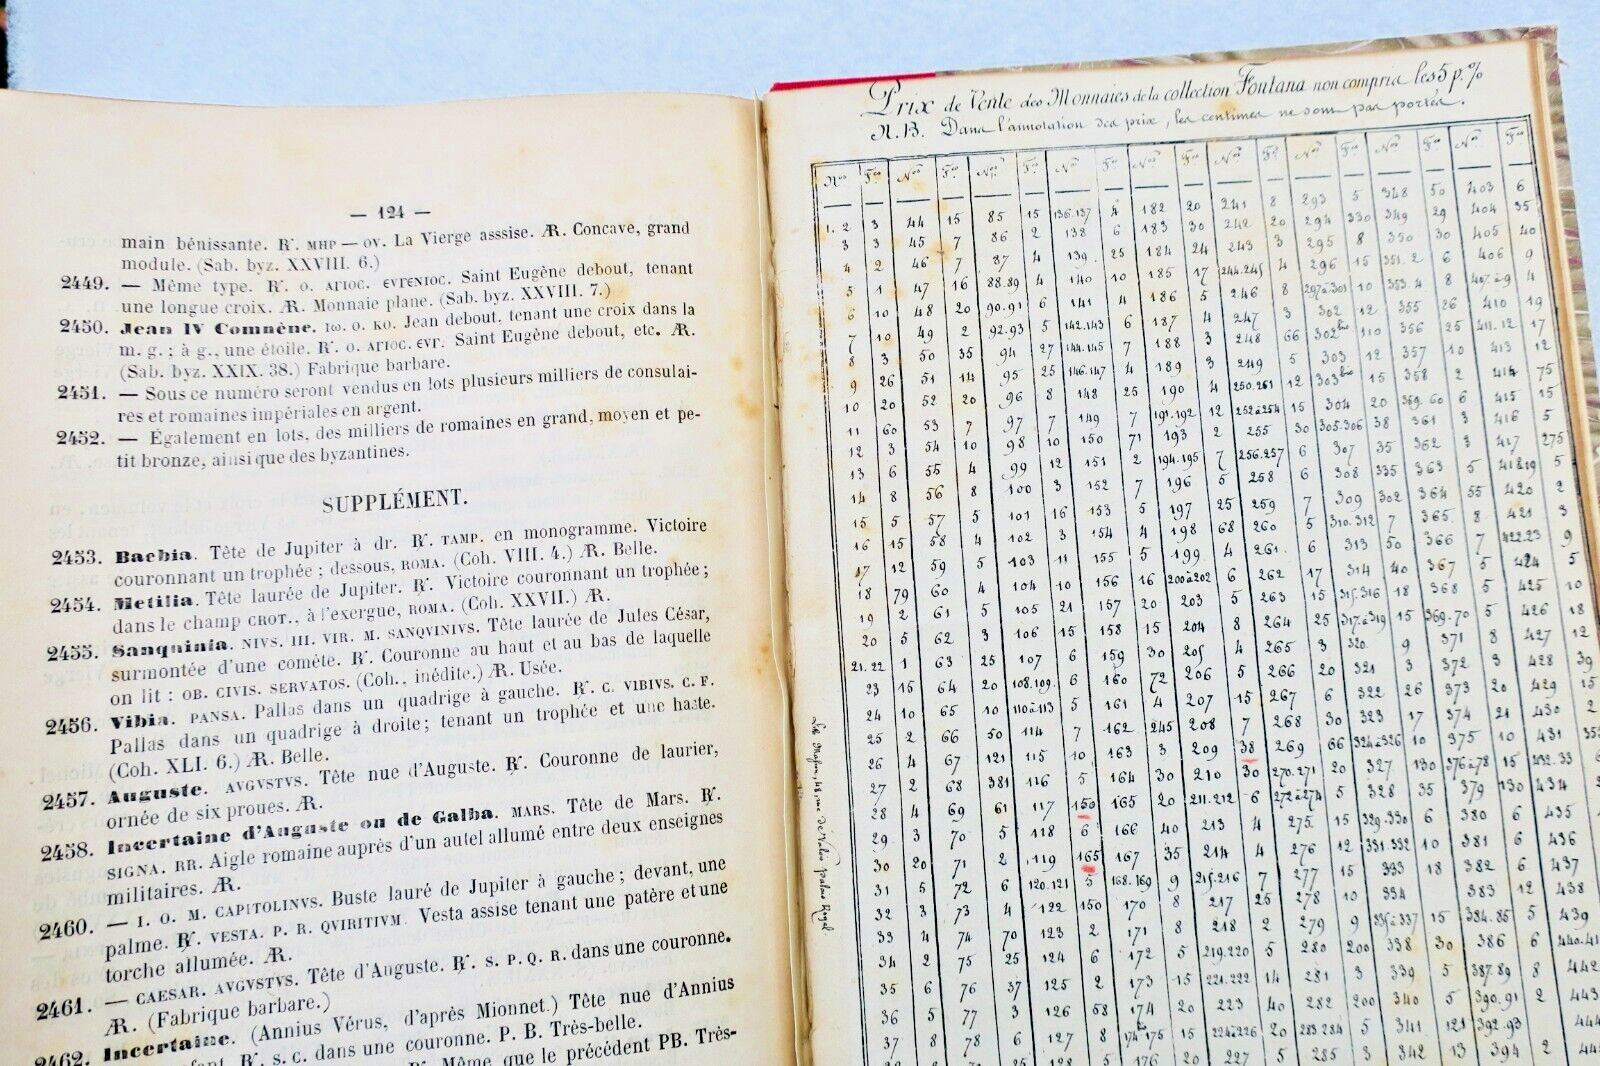 — 124 —
main bénissante. R̸. MHP — OV. La Vierge asssise. Æ. Concave, grand
module. (Sab. byz. XXVIII. 6.)
2449. — Même type. R̸. O. ΑΓΙΟC. ЄVΓЄΝΙΟC. Saint Eugène debout, tenant
une longue croix. Æ. Monnaie plane. (Sab. byz. XXVIII. 7.)
2450. Jean IV Comnène. Ιω. O. KO. Jean debout, tenant une croix dans la
m. g.; à g., une étoile. R̸. O. ΑΓΙΟC. ЄVΓ. Saint Eugène debout, etc. Æ.
(Sab. byz. XXIX. 38.) Fabrique barbare.
2451. — Sous ce numéro seront vendus en lots plusieurs milliers de consulai-
res et romaines impériales en argent.
2452. — Également en lots, des milliers de romaines en grand, moyen et pe-
tit bronze, ainsi que des byzantines.
SUPPLÉMENT.
2453. Baebia. Tête de Jupiter à dr. R̸. TAMP. en monogramme. Victoire
couronnant un trophée; dessous, ROMA. (Coh. VIII. 4.) Æ. Belle.
2454. Metilia. Tête laurée de Jupiter. R̸. Victoire couronnant un trophée;
dans le champ CROT., à l'exergue, ROMA. (Coh. XXVII.) Æ.
2455. Sanquinia. NIVS. III. VIR. M. SANQVINIVS. Tête laurée de Jules César,
surmontée d'une comète. R̸. Couronne au haut et au bas de laquelle
on lit : OB. CIVIS. SERVATOS. (Coh., inédite.) Æ. Usée.
2456. Vibia. PANSA. Pallas dans un quadrige à gauche. R̸. C. VIBIVS. C. F.
Pallas dans un quadrige à droite; tenant un trophée et une haste.
(Coh. XLI. 6.) Æ. Belle.
2457. Auguste. AVGVSTVS. Tête nue d'Auguste. R̸. Couronne de laurier,
ornée de six proues. Æ.
2458. Incertaine d'Auguste ou de Galba. MARS. Tête de Mars. R̸.
SIGNA. RR. Aigle romaine auprès d'un autel allumé entre deux enseignes
militaires. Æ.
2460. — I. O. M. CAPITOLINVS. Buste lauré de Jupiter à gauche; devant, une
palme. R̸. VESTA. P. R. QVIRITIVM. Vesta assise tenant une patère et une
torche allumée. Æ.
2461. — CAESAR. AVGVSTVS. Tête d'Auguste. R̸. S. P. Q. R. dans une couronne.
Æ. (Fabrique barbare.)
2462. Incertaine. (Annius Vérus, d'après Mionnet.) Tête nue d'Annius
enfant. R̸. S. C. dans une couronne. P. B. Très-belle.
R̸. Même que le précédent PB. Très-
Prix de Vente des Monnaies de la collection Fontana non compris les 5 p. %
N. B. Dans l'annotation des prix, les centimes ne sont pas portés.
Nos Fcs Nos Fcs Nos Fcs Nos Fcs Nos Fcs Nos Fcs Nos Fcs Nos Fcs Nos Fcs
1. 2 3 44 15 85 15 136.137 4 182 20 241 8 293 5 348 50 403 6
3 3 45 7 86 2 138 6 183 30 242 20 294 330 349 29 404 35
4 2 46 7 87 4 139 25 184 24 243 3 295 8 350 30 405 40
5 1 47 16 88.89 4 140 10 185 17 244.245 4 296 15 351.2 6 406 9
6 10 48 20 90.91 6 141 4 186 5 246 8 297à301 10 353.4 8 407à9 4
7 10 49 2 92.93 5 142.143 6 187 4 247 3 302 12 355 26 410 19
8 3 50 35 94 27 144.145 7 188 3 248 66 302bis 110 356 25 411.12 17
9 26 51 14 95 25 146.147 4 189 3 249 5 303 12 357 10 413 12
10 20 52 20 96 8 148 25 190 4 250.251 12 303bis 15 358 2 414 75
11 60 53 7 97 7 149 7 191.192 12 252à254 15 304 20 359.60 6 415 15
12 3 54 10 98 10 150 71 193 2 255 30 305.306 38 361 3 416 5
13 6 55 4 99 12 151 2 194.195 7 256.257 6 307 35 362 3 417 275
14 8 56 8 100 3 152 7 196 5 258 6 308 335 363 5 418.19 5
15 5 57 5 101 16 153 5 197 25 259 7 309 302 364 55 420 2
16 15 58 4 102 3 154 4 198 68 260 5 310.312 7 365 8 421 3
17 12 59 5 103 11 155 5 199 4 261 6 313 50 366 7 422.23 9
18 79 60 4 104 10 156 16 200à202 6 262 17 314 40 367 5 424 5
19 2 61 5 105 21 157 20 203 5 263 15 315.316 18 368 5 425 10
20 5 62 3 106 15 158 15 204 8 264 25 317à319 15 369.70 5 426 18
21.22 1 63 25 107 6 159 30 205 4 265 3 320 9 371 8 427 12
23 15 64 20 108.109 6 160 72 206 5 266 20 321 3 372 3 428 39
24 10 65 10 110à113 5 161 4 207 15 267 6 322 26 373 20 429 15
25 2 66 50 114 7 162 245 208 7 268 30 323 17 374 21 430 2
26 4 67 121 115 10 163 3 209 38 269 66 324à326 10 375 10 431
27 2 68 381 116 5 164 30 210 30 270.271 20 327 130 376à78 15 432.33
28 4 69 61 117 150 165 20 211.212 6 272à274 5 328 35 379 130 434
29 3 70 5 118 6 166 40 213 4 275 15 329.330 6 380 6 435
30 20 71 2 119 165 167 35 214 4 276 12 331.332 10 381 6 436
31 5 72 6 120.121 5 168.169 9 215.216 7 277 15 333 18 382 6 437
32 3 73 4 122 150 170 8 217 25 278 10 334 383 12 438
33 4 74 70 123 2 171 8 218 2 279 9 335à337 15 384.85 5 439
34 2 75 25 124 6 172 5 219.220 5 280 200 338 30 386 6 440.41
35 6 76 37 125 2 173 15 221.222 14 281 3 339 5 387.89 8 442
36 5 77 3 126 58 174 20 223 40 282 200 340 5 390.91 2 443
37 8 78 6 127 8 174bis175 15 224à226 20 283.284 5 341 121 392.93 444
128 5 176 20 227 5 285 3 342 13 394 2